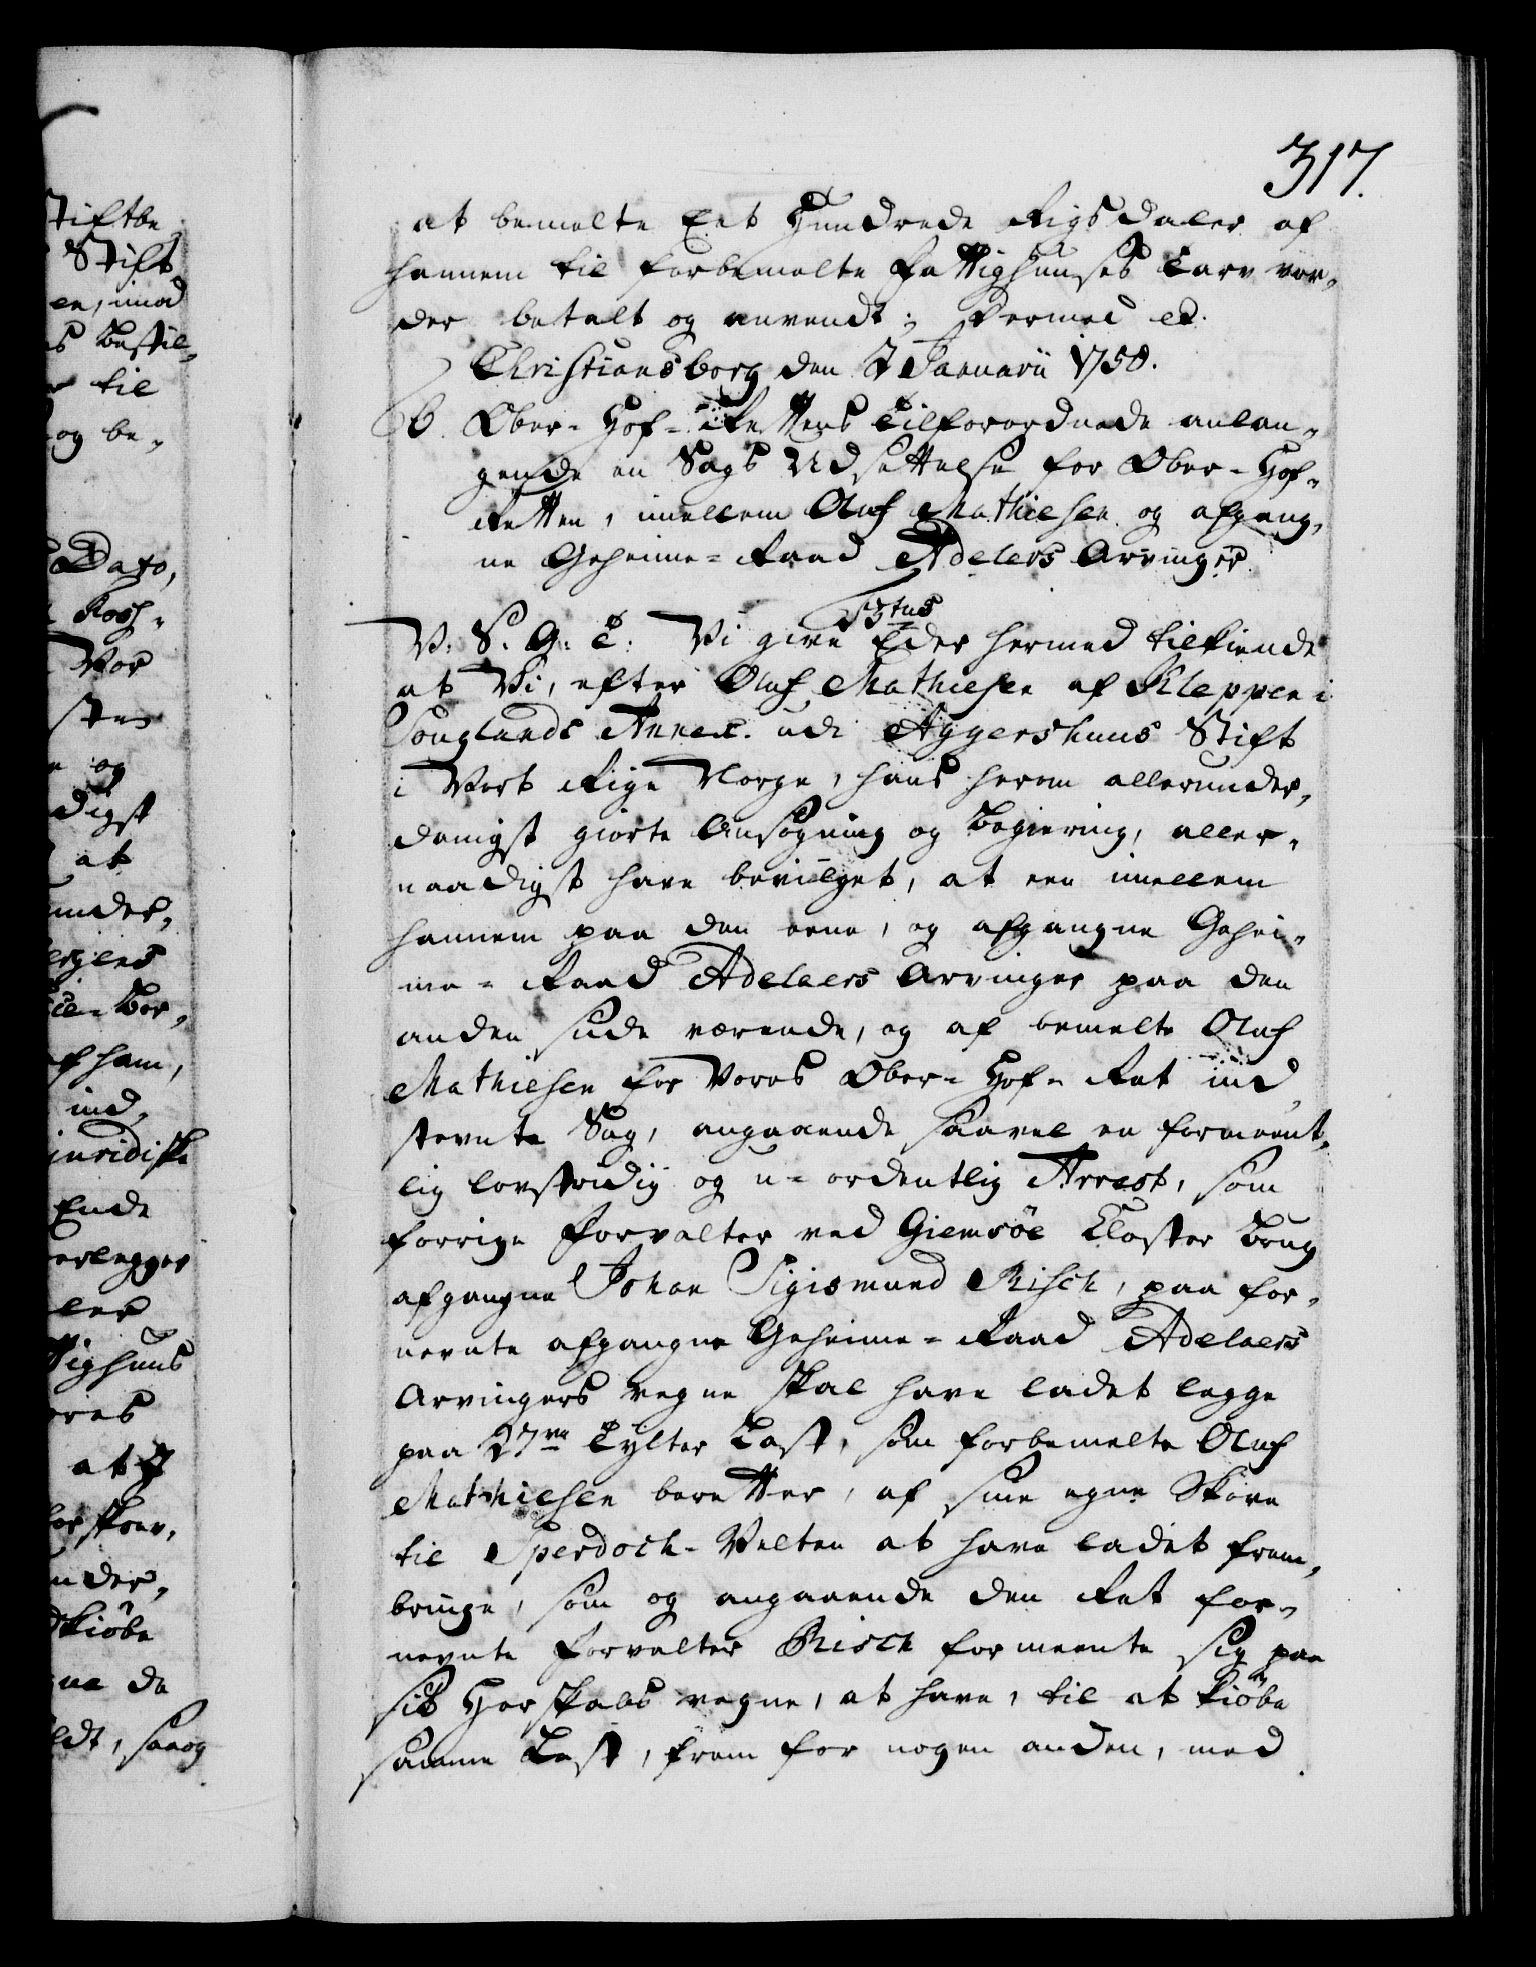 317.
Stiftbe
Stift
en, imod
s Bestil-
til
og be-
Dato,
Kosg-
Vor
sten
og
digst
at
under,
ie-Bor,
af ham,
ind,
juridiske
Ende
erlegger
ler
tighuus
ores
at
nder,
kiöbe
ne da
ldt, saaog
at bemelte Eet Hundrede Rigsdaler af
hannem til forbemelte Fattighuuses Tarv vor-
der betalt og anvendt; Dermed etc.
Christiansborg den 7 Januarii 1750.
6. Ober-Hof-Rettens Tilforordnede anlan-
gende en Sags Udsettelse for Ober-Hof-
Retten, imellem Oluf Mathiesen og afgang-
ne Geheime-Raad Adelers Arvinger.
53tus
V. S. G. T. Vi give Eder hermed tilkiende
at Vi, efter Oluf Mathiesen af Kleppen i
Souglands Annex udi Aggershuus Stift
i Vort Rige Norge, hans herom allerunder-
danigst giorte Ansøgning og Begiering, aller-
naadigst have bevilget, at en imellem
hannem paa den eene, og afgangne Gehei-
me-Raad Adelaers Arvinger paa den
anden side værende, og af bemelte Oluf
Mathiesen for Vores Ober-Hof-Ret ind-
stevnte Sag, angaaende saavel en formeent-
lig lovstridig og u-ordentlig Arrest, som
forrige Forvalter ved Giemsöe Closter Brug
afgangne Johan Sigismund Risch, paa for-
nevnte afgangne Geheime-Raad Adelaers
Arvingers vegne skal have ladet legge
paa 27ve Tylter Last, som forbemelte Oluf
Mathiesen beretter, af sine egne Skove
til Sperdoch-Velten at have ladet frem-
bringe, som og angaaende den Ret for-
nevnte Forvalter Risch formeente sig paa
sit Herskabs vegne, at have, til at kiöbe
samme Last, frem for nogen anden, med